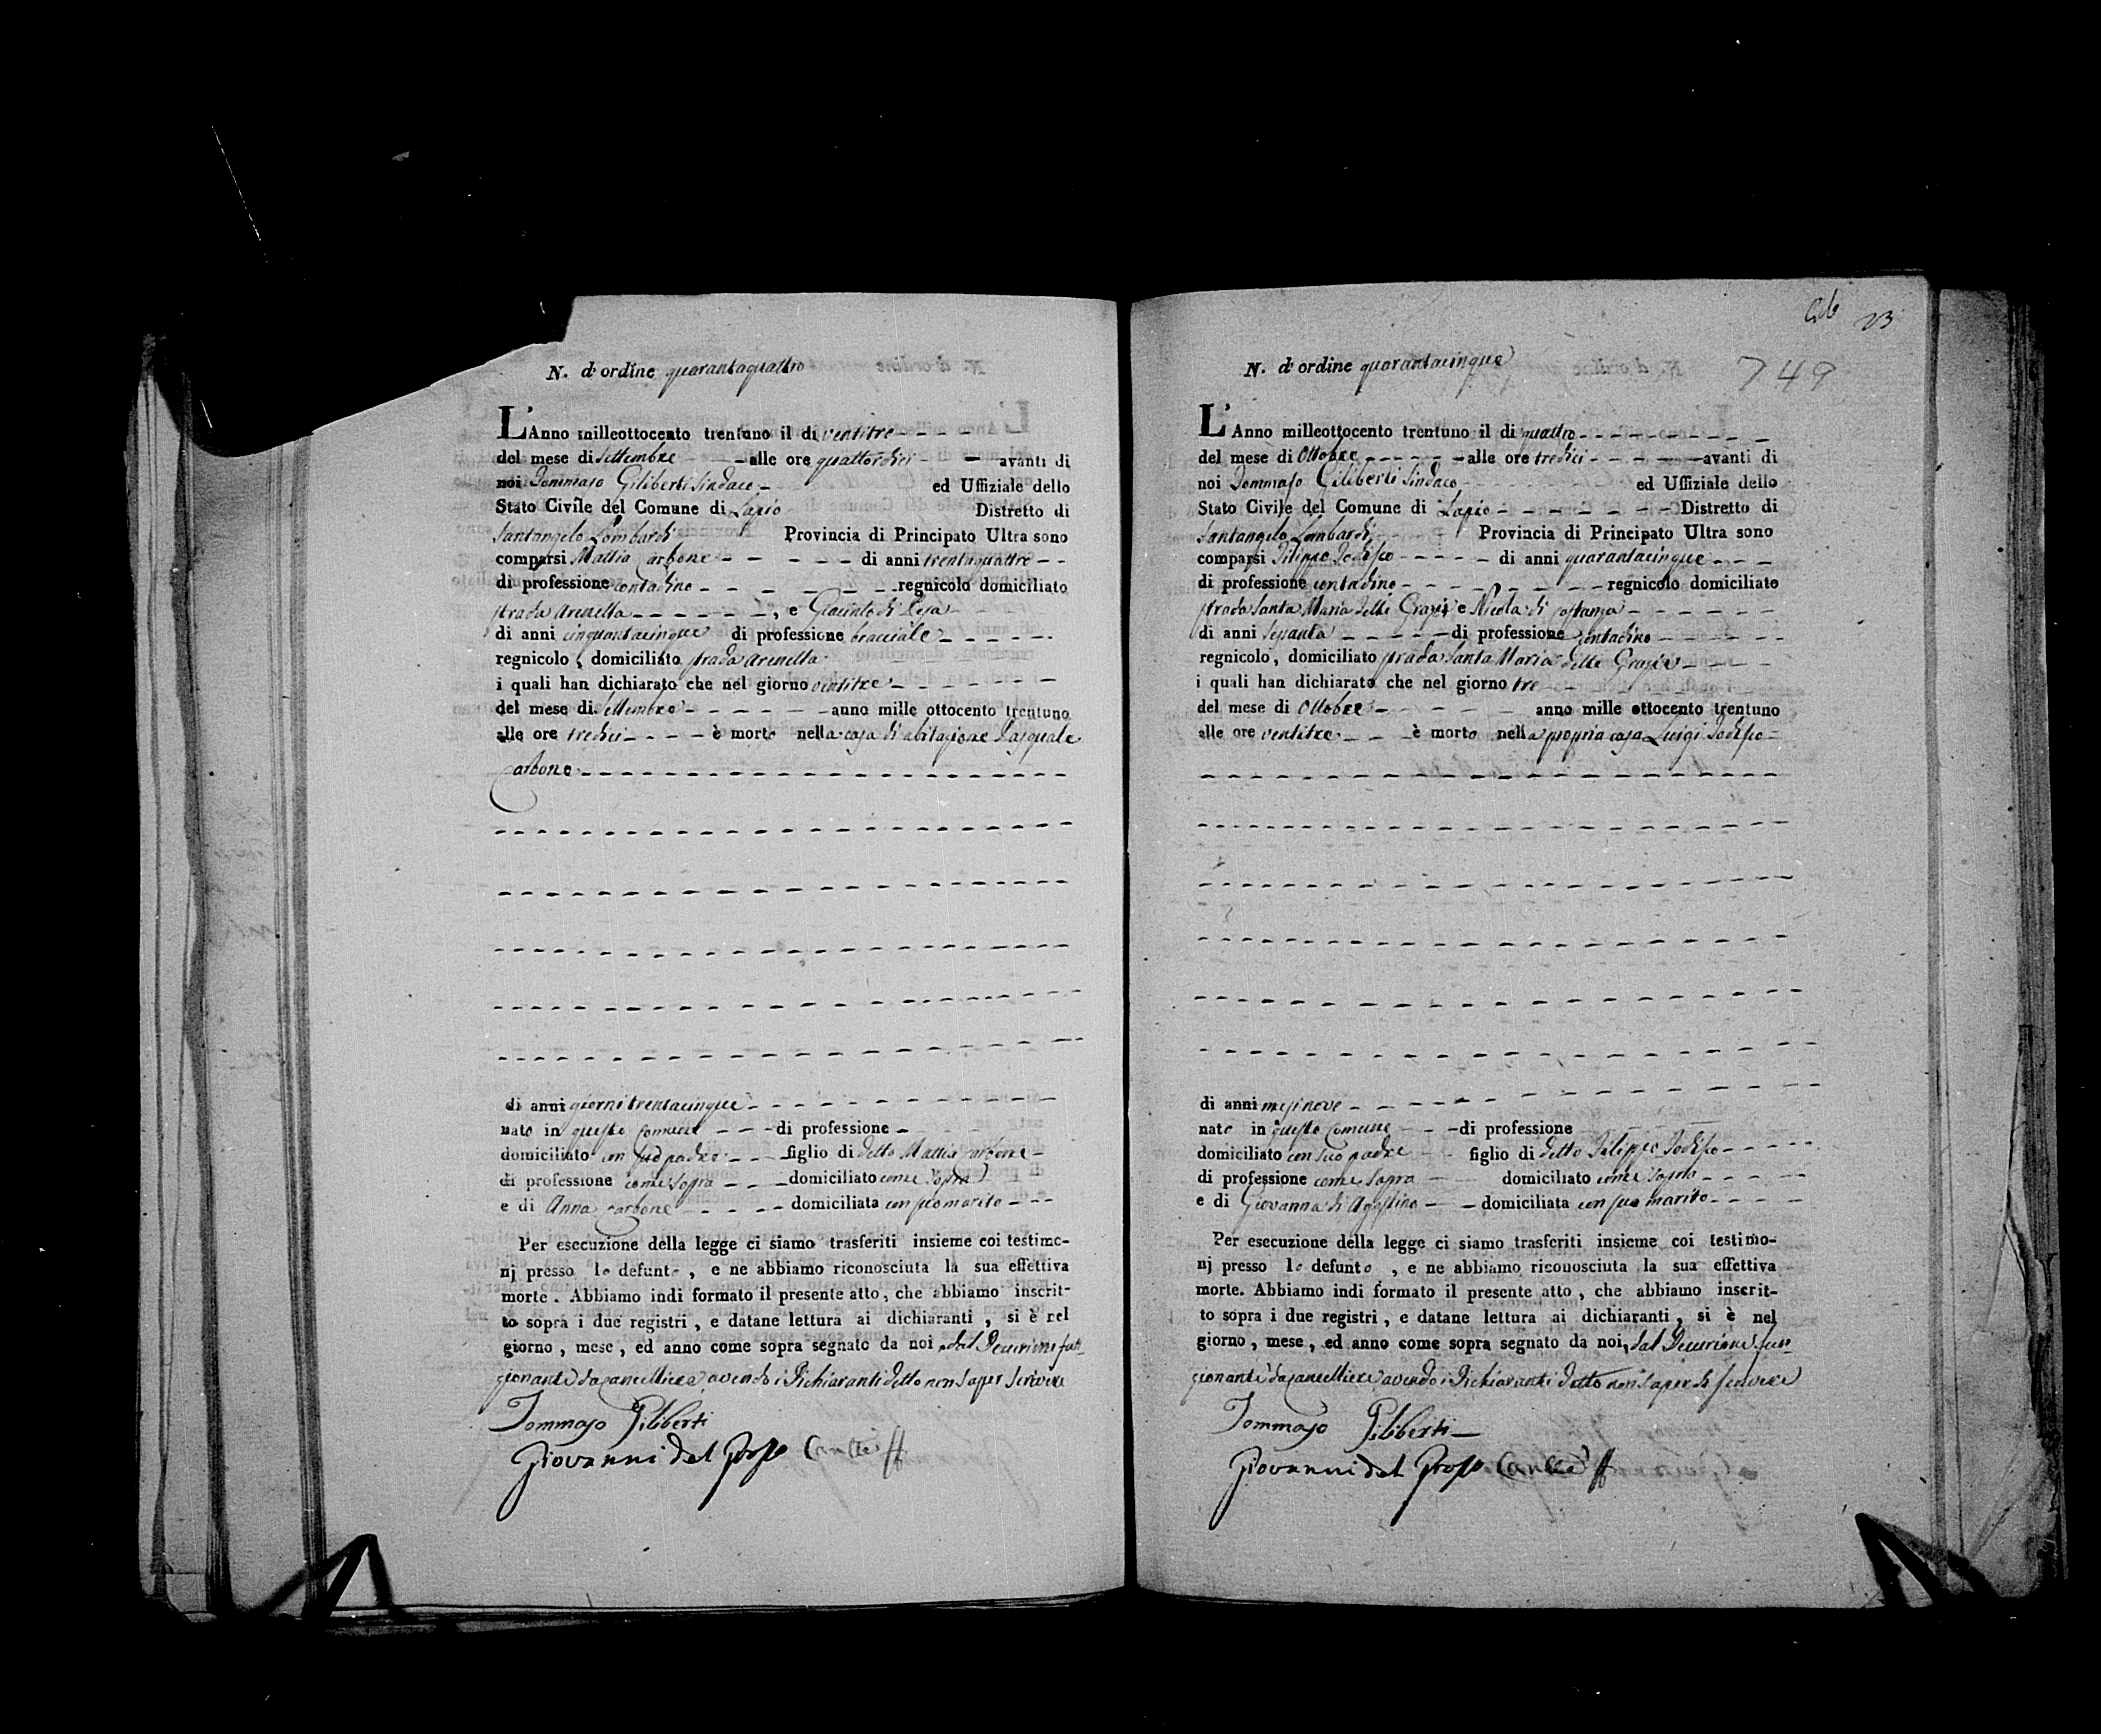 N. d'ordine quarantaquattro
L'Anno milleottocento trentuno il di ventitre
del mese di Settembre alle ore quattordici avanti di
noi Tommaso Giliberti Sindaco ed Uffiziale dello
Stato Civile del Comune di Lapio Distretto di
Santangelo Lombardi Provincia di Principato Ultra sono
comparsi Mattia Carbone di anni trentaquattro
di professione contadino regnicolo domiciliato
strada Arenella, e Giacinto di
di anni cinquantacinque di professione bracciale
regnicolo, domiciliato strada Arenella
i quali han dichiarato che nel giorno ventitre
del mese di Settembre anno mille ottocento trentuno
alle ore tredici è morto nella casa di abitazione Pasquale
Carbone
di anni giorni trentacinque
nato in questo Comune di professione
domiciliato con suo padre figlio di detto Mattia Carbone
di professione come sopra domiciliato come sopra
e di Anna Carbone domiciliata con suo marito
Per esecuzione della legge ci siamo trasferiti insieme coi testimo-
nj presso lo defunto, e ne abbiamo riconosciuta la sua effettiva
morte. Abbiamo indi formato il presente atto, che abbiamo inscrit-
to sopra i due registri, e datane lettura ai dichiaranti, si è nel
giorno, mese, ed anno come sopra segnato da noi, dal Decurione fun-
zionante da Cancelliere avendo i Dichiaranti detto non saper scrivere
Tommaso Giliberti
Giovanni del
23
749
N. d'ordine quarantacinque
L'Anno milleottocento trentuno il di quattro
del mese di Ottobre alle ore tredici avanti di
noi Tommaso Giliberti Sindaco ed Uffiziale dello
Stato Civile del Comune di Lapio Distretto di
Santangelo Lombardi Provincia di Principato Ultra sono
comparsi Filippo Todisco di anni quarantacinque
di professione contadino regnicolo domiciliato
strada Santa Maria delle Grazie e Nicola di Costanza
di anni sessanta di professione contadino
regnicolo, domiciliato strada Santa Maria delle Grazie
i quali han dichiarato che nel giorno tre
del mese di Ottobre anno mille ottocento trentuno
alle ore ventitre è morto nella propria casa Luigi Todisco
di anni mesi nove
nato in questo Comune di professione
domiciliato con suo padre figlio di detto Filippo Todisco
di professione come sopra domiciliato come sopra
e di Giovanna di Agostino domiciliata con suo marito
Per esecuzione della legge ci siamo trasferiti insieme coi testimo-
nj presso lo defunto, e ne abbiamo riconosciuta la sua effettiva
morte. Abbiamo indi formato il presente atto, che abbiamo inscrit-
to sopra i due registri, e datane lettura ai dichiaranti, si è nel
giorno, mese, ed anno come sopra segnato da noi, dal Decurione fun-
zionante da Cancelliere avendo i Dichiaranti detto non saper di scrivere
Tommaso Giliberti
Giovanni del